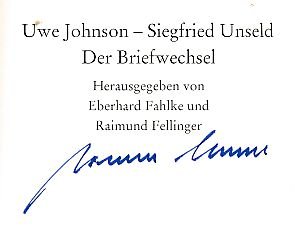 Uwe Johnson – Siegfried Unseld
Der Briefwechsel
Herausgegeben von
Eberhard Fahlke und
Raimund Fellinger